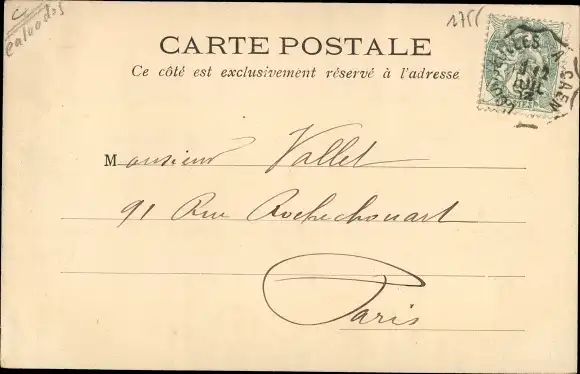 C
Calvados
1755
CARTE POSTALE
Ce côté est exclusivement réservé à l'adresse
COURSEULLES A CAEN
Monsieur Vallet
91 Rue Rochechouart
Paris